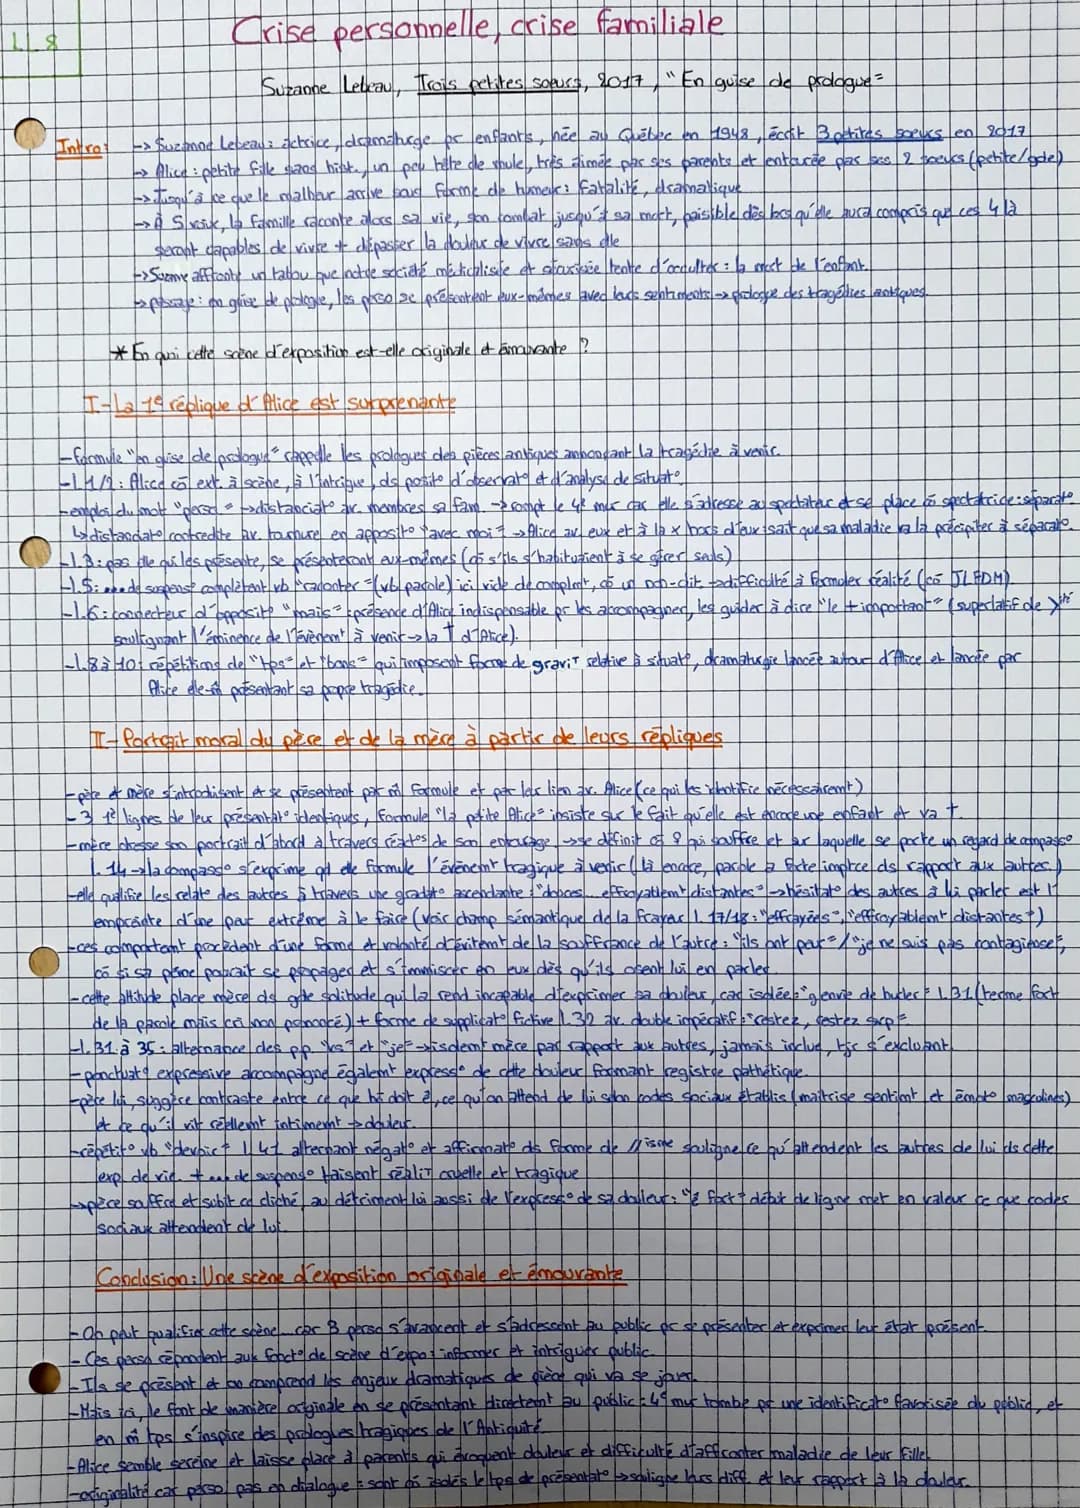 LL8
Crise personnelle, crise familiale
Suzanne Lebeau, Trois petites soeurs, 2017, "En guise de prologue"
Intro: -> Suzanne Lebeau: actrice, dramaturge pr enfants, née au Québec en 1948, écrit 3 petites soeurs en 2017
-> Alice: petite fille sans hist., un peu tête de mule, très aimée par ses parents et entourée par ses 2 soeurs (petite/gde)
-> Jusqu'à ce que le malheur arrive sous forme de tumeur: fatalité, dramatique
-> À 5 voix, la famille raconte alors sa vie, son combat jusqu'à sa mort, paisible dès lors qu'elle aura compris que ces 4 là
seront capables de vivre + dépasser la douleur de vivre sans elle
-> affronte un tabou que notre société médicalisée et tente d'occulter: la mort de l'enfant.
-> passage: en guise de prologue, les perso se présentent eux-mêmes avec leurs sentiments -> prologue des tragédies antiques.
* En quoi cette scène d'exposition est-elle originale et émouvante ?
I- La 1e réplique d'Alice est surprenante
- formule "en guise de prologue" rappelle les prologues des pièces antiques annonçant la tragédie à venir.
- L.1/2: Alice cô ext. à scène, à l'intrigue, ds posit° d'observat° et d'analyse de situat°
- emploi du mot "perso" -> distanciat° av. membres sa fam. -> rompt le 4e mur car elle s'adresse au spectateur et se place cô spectatrice: séparat°
↳ distanciat° contredite av. tournure en apposit° "avec moi" -> Alice av. eux et à la x hors d'eux sait que sa maladie va la précipiter à séparat°
- L.3: pas elle qui les présente, se présenteront eux-mêmes (cô s'ils s'habituaient à se gérer seuls)
- L.5: suspens° complétant vb "raconter" (vb parole) ici vide de complmt, cô un non-dit -> difficulté à formuler réalité (cô JLFDM)
- L.6: connecteur d'opposit° "mais": présence d'Alice indispensable pr les accompagner, les guider à dire "le + important" (superlatif de
soulignant l'éminence de l'évènemt à venir -> la † d'Alice).
- L.8 à 10: répétitions de "tps" et "bons" qui imposent forme de gravité relative à situat°, dramaturgie lancée autour d'Alice et lancée par
Alice elle-m̂ présentant sa propre tragédie.
II- Portrait moral du père et de la mère à partir de leurs répliques
- père et mère s'introduisent et se présentent par m̂ formule et par leur lien av. Alice (ce qui les identifie nécessairemt)
- 3 1e lignes de leur présentat° identiques, formule "la petite Alice" insiste sur le fait qu'elle est encore une enfant et va †.
- mère dresse son portrait d'abord à travers réact°s de son entourage -> se définit cô qui souffre et sur laquelle se porte un regard de compass°
L.14 -> la compass° s'exprime qd elle formule l'évènemt tragique à venir (là encore, parole a forte importce ds rapport aux autres.)
- elle qualifie les relat° des autres à travers une gradat° ascendante: "douces... effroyablemt distantes" -> hésitat° des autres à lui parler est
empreinte d'une peur extrême à le faire (voir champ sémantique de la frayeur L.17/18: "effrayées", "effroyablemt distantes")
- ces comportemt procèdent d'une forme de volonté d'évitemt de la souffrance de l'autre: "ils ont peur" / "je ne suis pas contagieuse",
cô si sa peine pouvait se propager et s'immiscer en eux dès qu'ils osent lui en parler.
- cette attitude place mère ds gde solitude qui la rend incapable d'exprimer sa douleur, car isolée: "j'envie de hurler" L.31 (terme fort
de la parole mais cri non prononcé) + forme de supplicat° fictive L.32 av. double impératif: "restez, restez svp".
- L.31 à 35: alternance des pp. "vs" et "je" -> isolemt mère par rapport aux autres, jamais inclus, tjs s'excluant.
- ponctuat° expressive accompagne égalemt express° de cette douleur formant registre pathétique.
- père lui, suggère contraste entre ce que lui doit ê, ce qu'on attend de lui selon codes sociaux établis (maitrise sentimt et émot° masculines)
et ce qu'il vit réellemt intimemt -> douleur.
- répétit° vb "devoir" L.41 alternant négat° et affirmat° ds forme de //isme souligne ce qu'attendent les autres de lui ds cette
exp. de vie. + de suspens° taisent réalité cruelle et tragique
-> père souffre et subit ce cliché, au détriment lui aussi de l'express° de sa douleur: "ê fort" début de ligne met en valeur ce que codes
sociaux attendent de lui.
Conclusion: Une scène d'exposition originale et émouvante
- On peut qualifier cette scène... car 3 perso s'avancent et s'adressent au public pr se présenter et exprimer leur état présent.
- Ces perso répondent aux fonct° de scène d'expo: informer et intriguer public.
- Ils se présent et on comprend les enjeux dramatiques de pièce qui va se jouer.
- Mais ici, le font de manière originale en se présentant directemt au public: 4e mur tombe pr une identificat° favorisée du public, et
en m̂ tps s'inspire des prologues tragiques de l'Antiquité.
- Alice semble sereine et laisse place à parents qui évoquent douleur et difficulté d'affronter maladie de leur fille.
- originalité car perso pas en dialogue: sont cô isolés le tps de présentat° -> souligne leurs diff. et leur rapport à la douleur.